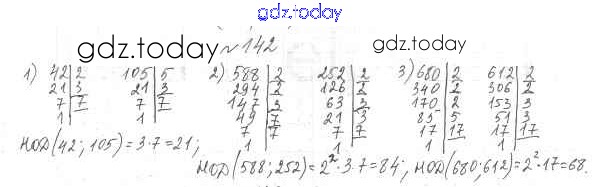 gdz.today
gdz.today
gdz.today
№142
1) 42|2 105|5 2) 588|2 252|2 3) 680|2 612|2
21|3 21|3 294|2 126|2 340|2 306|2
7|7 7|7 147|3 63|3 170|2 153|3
1 1 49|7 21|3 85|5 51|3
7|7 7|7 17|17 17|17
1 1 1 1
НОД(42; 105) = 3·7 = 21;
НОД(588; 252) = 2²·3·7 = 84; НОД(680; 612) = 2²·17 = 68.